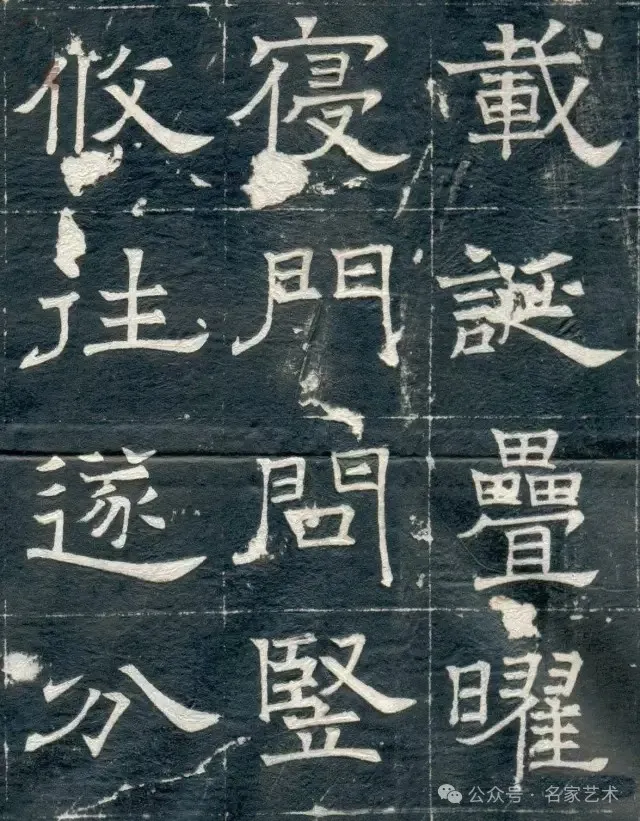 載誕疊曜
寑門問豎
攸往遂分
公众号 · 名家艺术